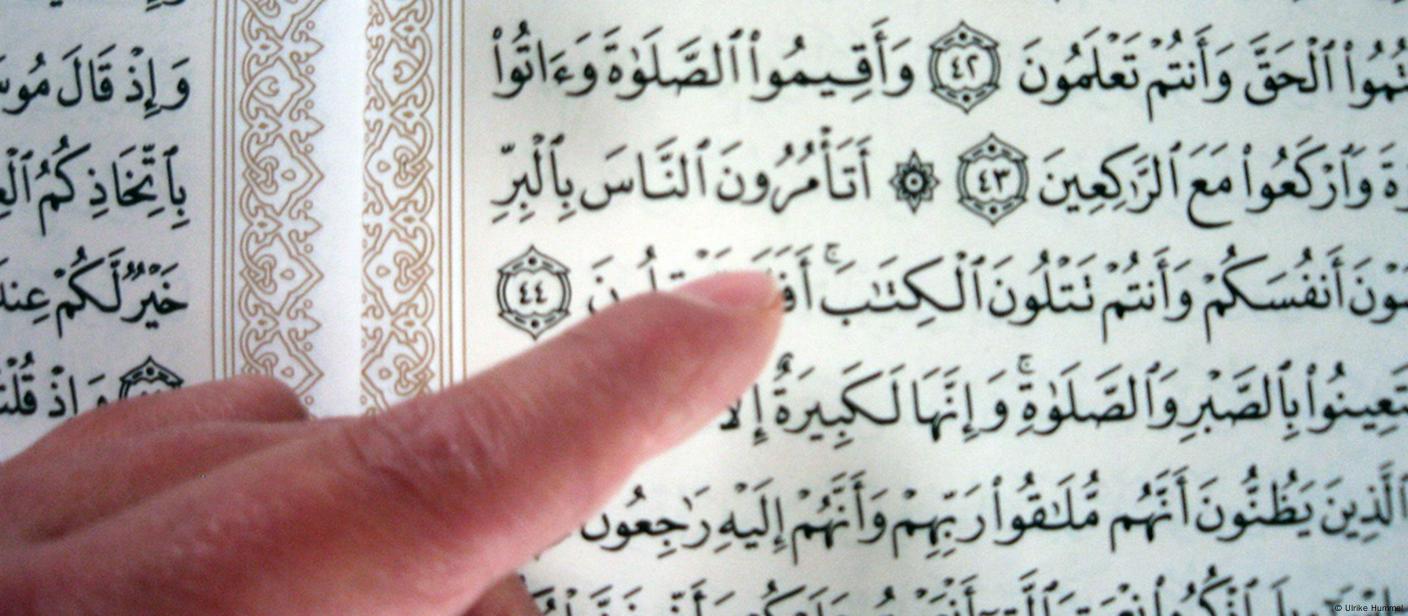 ٱلْحَقَّ وَأَنتُمْ تَعْلَمُونَ ٤٢ وَأَقِيمُوا۟ ٱلصَّلَوٰةَ وَءَاتُوا۟
وَٱرْكَعُوا۟ مَعَ ٱلرَّٰكِعِينَ ٤٣ ۞ أَتَأْمُرُونَ ٱلنَّاسَ بِٱلْبِرِّ
أَنفُسَكُمْ وَأَنتُمْ تَتْلُونَ ٱلْكِتَٰبَ ۚ ٤٤
بِٱلصَّبْرِ وَٱلصَّلَوٰةِ ۚ وَإِنَّهَا لَكَبِيرَةٌ إِلَّا
ٱلَّذِينَ يَظُنُّونَ أَنَّهُم مُّلَٰقُوا۟ رَبِّهِمْ وَأَنَّهُمْ إِلَيْهِ رَٰجِعُونَ
وَإِذْ قَالَ
بِٱتِّخَاذِكُمُ
خَيْرٌ لَّكُمْ
وَإِذْ
© Ulrike Hummel